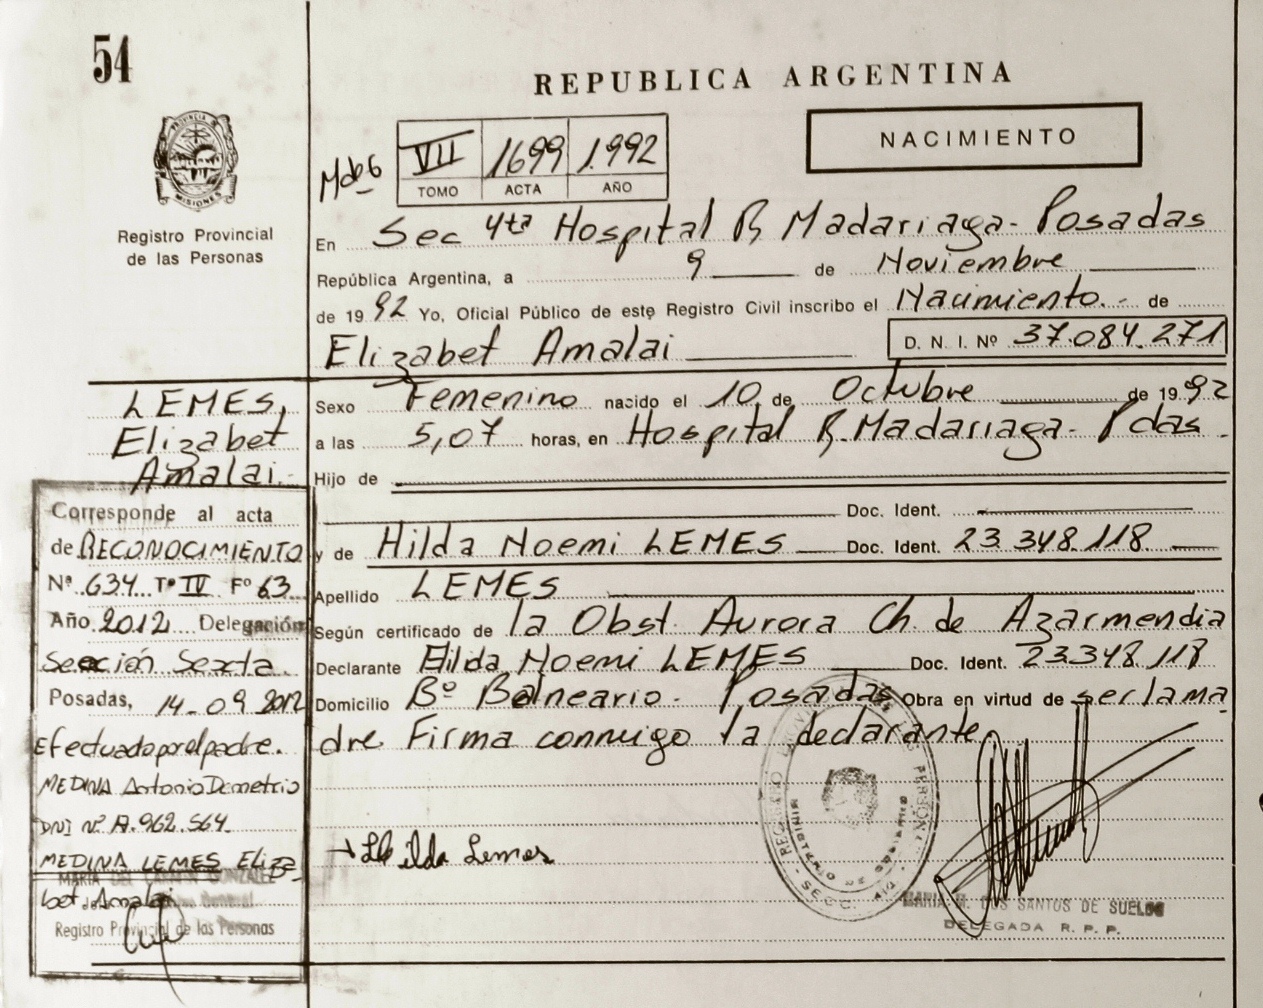 54
REPUBLICA ARGENTINA
NACIMIENTO
PROVINCIA DE
MISIONES
Registro Provincial
de las Personas
VII 1699 1.992
TOMO ACTA AÑO
En Sec 4ta Hospital R Madariaga - Posadas
República Argentina, a 9 de Noviembre
de 1992 Yo, Oficial Público de este Registro Civil inscribo el Nacimiento.- de
Elizabet Amalai D. N. I. Nº 37.084.271
LEMES,
Elizabet
Amalai.-
Sexo Femenino nacido el 10 de Octubre de 1992
a las 5,07 horas, en Hospital R. Madariaga - Pdas.
Hijo de
Doc. Ident.
y de Hilda Noemi LEMES Doc. Ident. 23.348.118
Apellido LEMES
Según certificado de la Obst. Aurora Ch. de Azarmendia
Declarante Hilda Noemi LEMES Doc. Ident. 23.348.118
Domicilio Bº Balneario - Posadas Obra en virtud de ser la ma
dre Firma conmigo la declarante.
Corresponde al acta
de RECONOCIMIENTO
Nº 634 Tº IV Fº 63
Año 2012 Delegación
Sección Sexta
Posadas, 14-09-2012
Efectuado por el padre.
MEDINA Antonio Demetrio
DNI Nº .962.564
MEDINA LEMES Eliza-
bet Amalai
MARIA DEL CARMEN GONZALEZ
Registro Provincial de las Personas
Hilda Lemes
MARIA M. DOS SANTOS DE SUELDO
DELEGADA R. P. P.